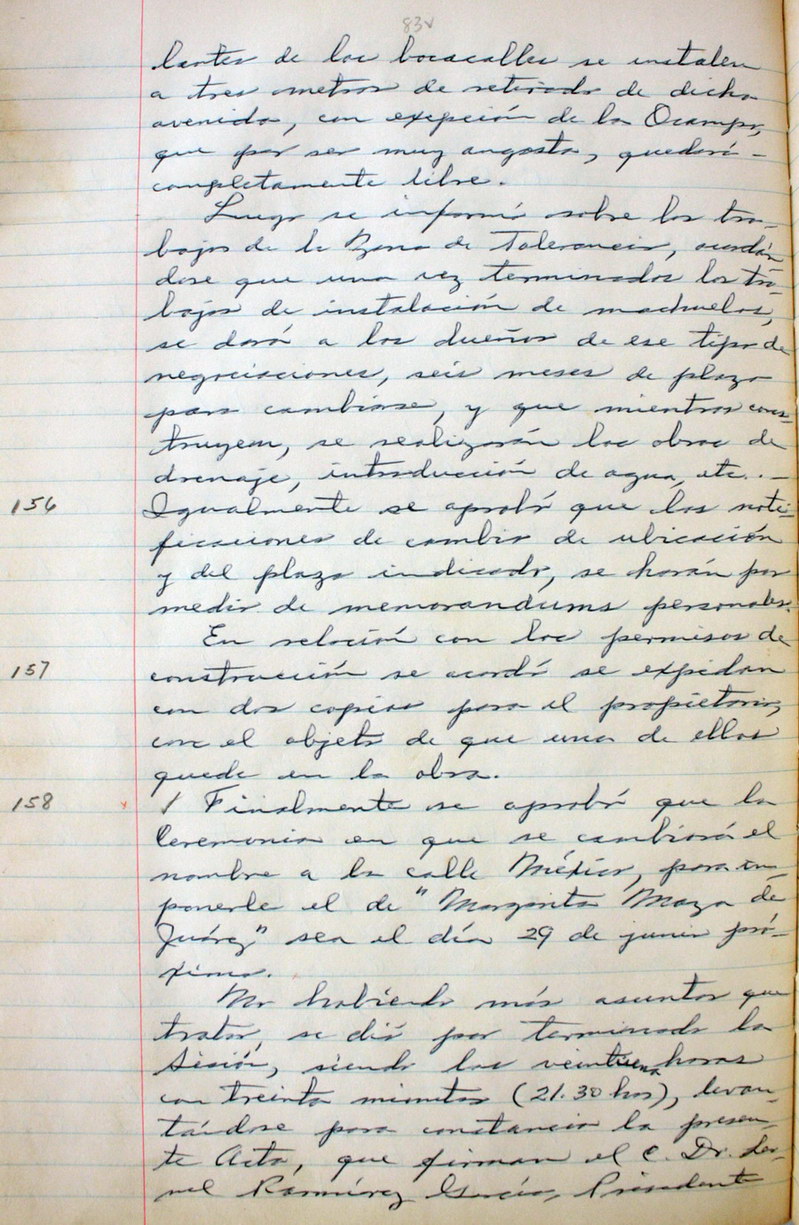 83v
lantes de las bocacalles se instalen
a tres metros de retirado de dicha
avenida, con exepción de la Ocampo,
que por ser muy angosta, quedará -
completamente libre.
Luego se informó sobre los tra-
bajos de la Zona de Tolerancia, acordán-
dose que una vez terminados los tra-
bajos de instalación de machuelos,
se dará a los dueños de ese tipo de
negociaciones, seis meses de plazo
para cambiarse, y que mientras cons-
truyen, se realizarán las obras de
drenaje, introducción de agua, etc. . -
156 Igualmente se aprobó que las noti-
ficaciones de cambio de ubicación
y del plazo indicado, se harán por
medio de memorandums personales.
En relación con los permisos de
157 construcción se acordó se expidan
con dos copias para el propietario,
con el objeto de que una de ellas
quede en la obra.
158 / Finalmente se aprobó que la
Ceremonia en que se cambiará el
nombre a la calle México, para im-
ponerle el de "Margarita Maza de
Juárez" sea el día 29 de junio pró-
ximo.
No habiendo más asuntos que
tratar, se dió por terminada la
Sesión, siendo las veintiuna horas
con treinta minutos (21.30 hos), levan-
tándose para constancia la presen-
te Acta, que firman el C. Dr.
Ramírez García, Presidente